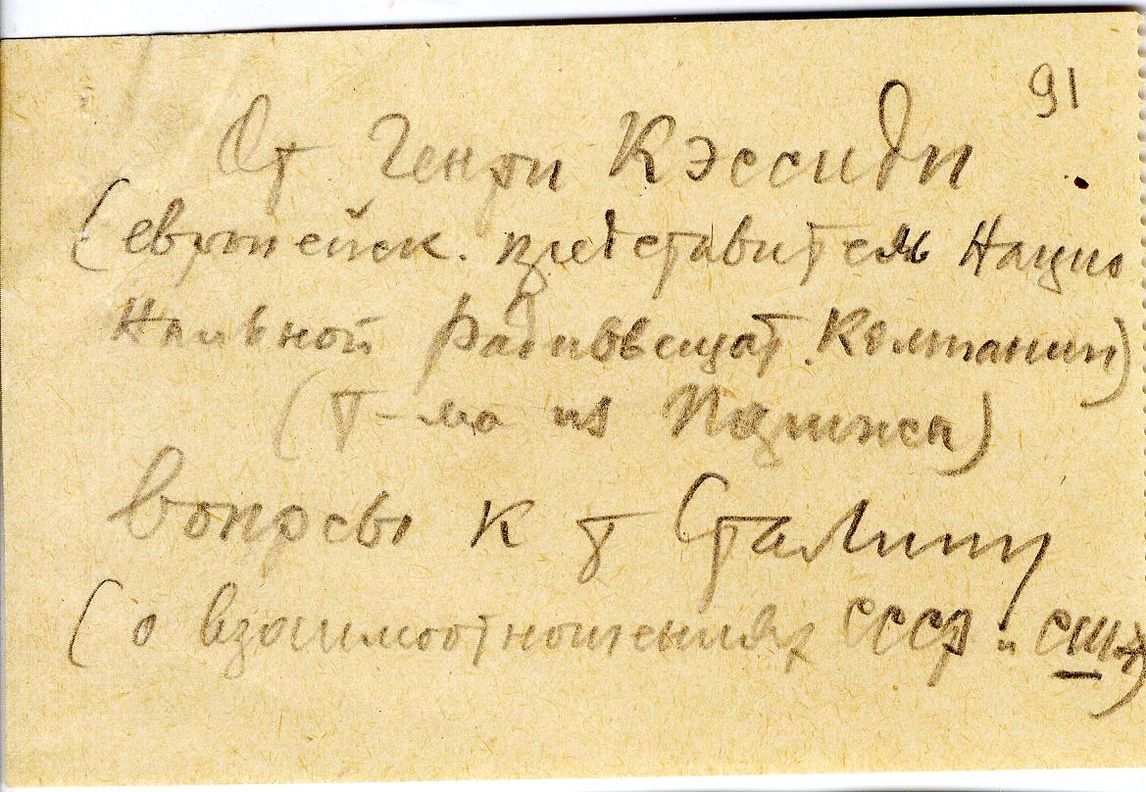 91
От Генри Кэссиди
(европейск. представитель Нацио
нальной Радиовещат. Компании)
(т-ма из Парижа)
Вопросы к т Сталину
(о взаимоотношениях СССР и США)